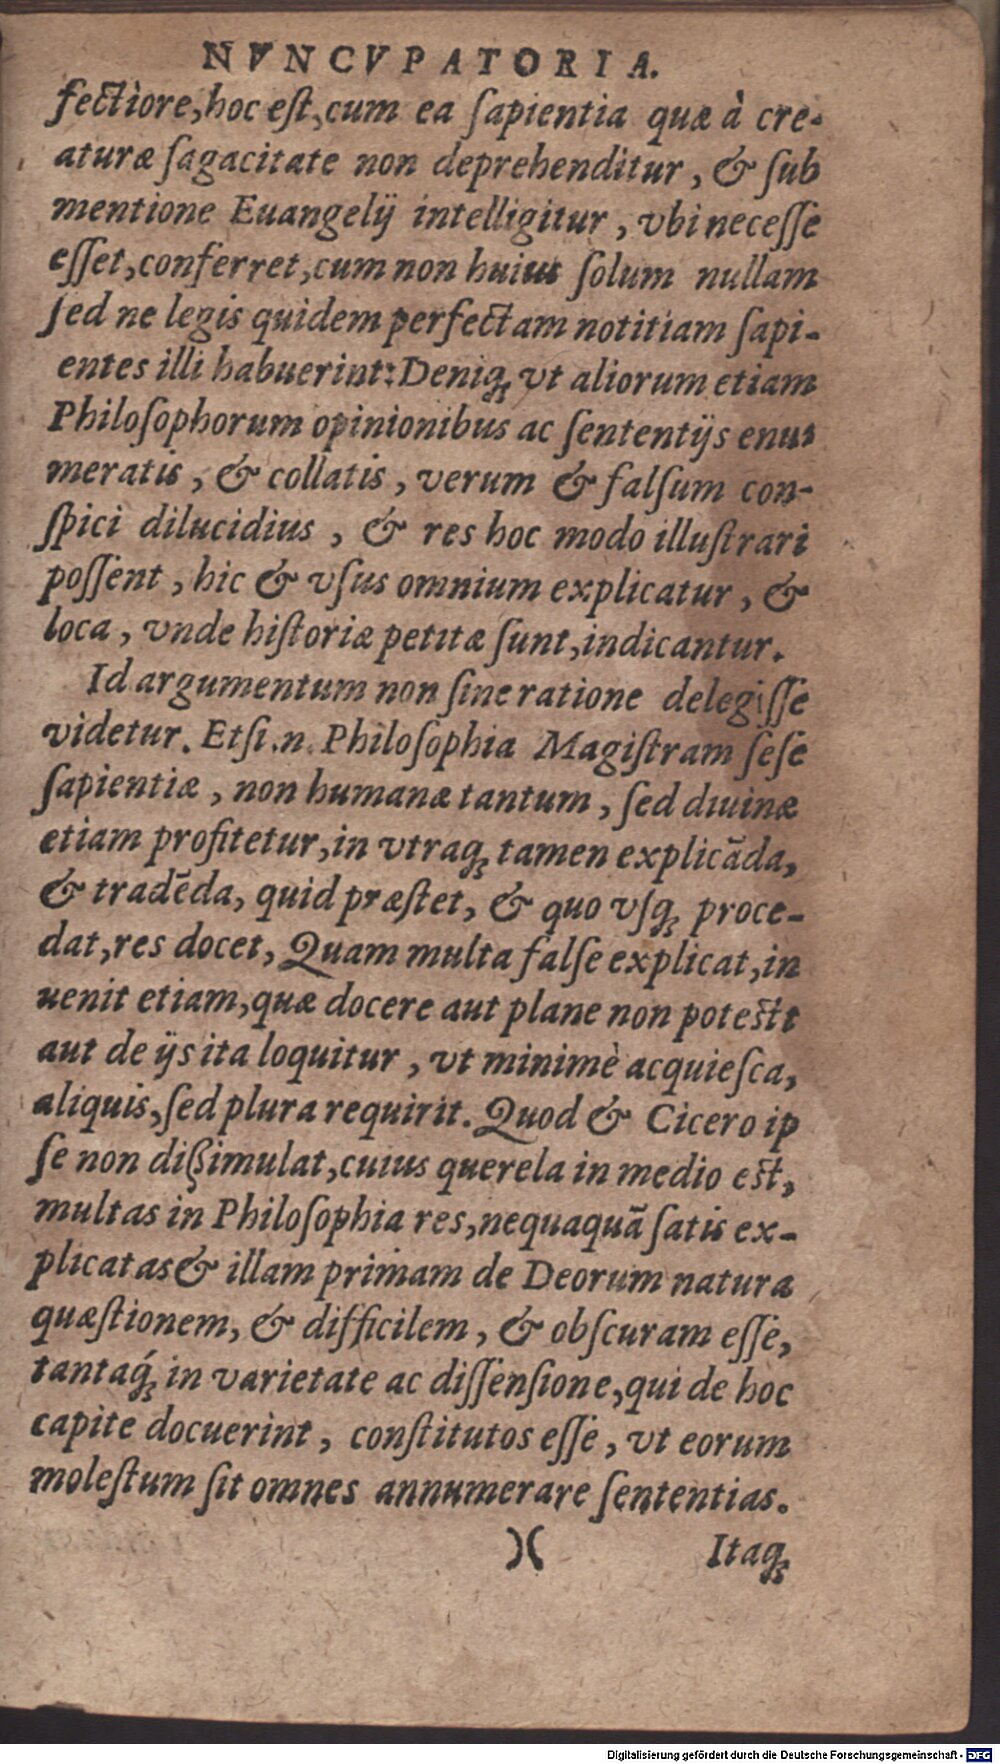 NVNCVPATORIA.
fectiore, hoc eſt, cum ea ſapientia quæ à cre-
aturæ ſagacitate non deprehenditur, & ſub
mentione Euangelij intelligitur, vbi neceſſe
eſſet, conferret, cum non huius ſolum nullam
ſed ne legis quidem perfectam notitiam ſapi-
entes illi habuerint: Deniq; vt aliorum etiam
Philoſophorum opinionibus ac ſententijs enu-
meratis, & collatis, verum & falſum con-
ſpici dilucidius, & res hoc modo illuſtrari
poſſent, hic & vſus omnium explicatur, &
loca, vnde hiſtoriæ petitæ ſunt, indicantur.
Id argumentum non ſine ratione delegiſſe
videtur. Etſi.n. Philoſophia Magiſtram ſeſe
ſapientiæ, non humanæ tantum, ſed diuinæ
etiam profitetur, in vtraq; tamen explicãda,
& tradẽda, quid præſtet, & quo vſq; proce-
dat, res docet, Quam multa falſe explicat, in
uenit etiam, quæ docere aut plane non poteſtt
aut de ijs ita loquitur, vt minimè acquieſca,
aliquis, ſed plura requirit. Quod & Cicero ip
ſe non dißimulat, cuius querela in medio eſt,
multas in Philoſophia res, nequaquã ſatis ex-
plicatas & illam primam de Deorum natura
quæſtionem, & difficilem, & obſcuram eſſe,
tantaq́; in varietate ac diſſenſione, qui de hoc
capite docuerint, conſtitutos eſſe, vt eorum
moleſtum ſit omnes annumerare ſententias.
)( Itaq;
Digitalisierung gefördert durch die Deutsche Forschungsgemeinschaft - DFG